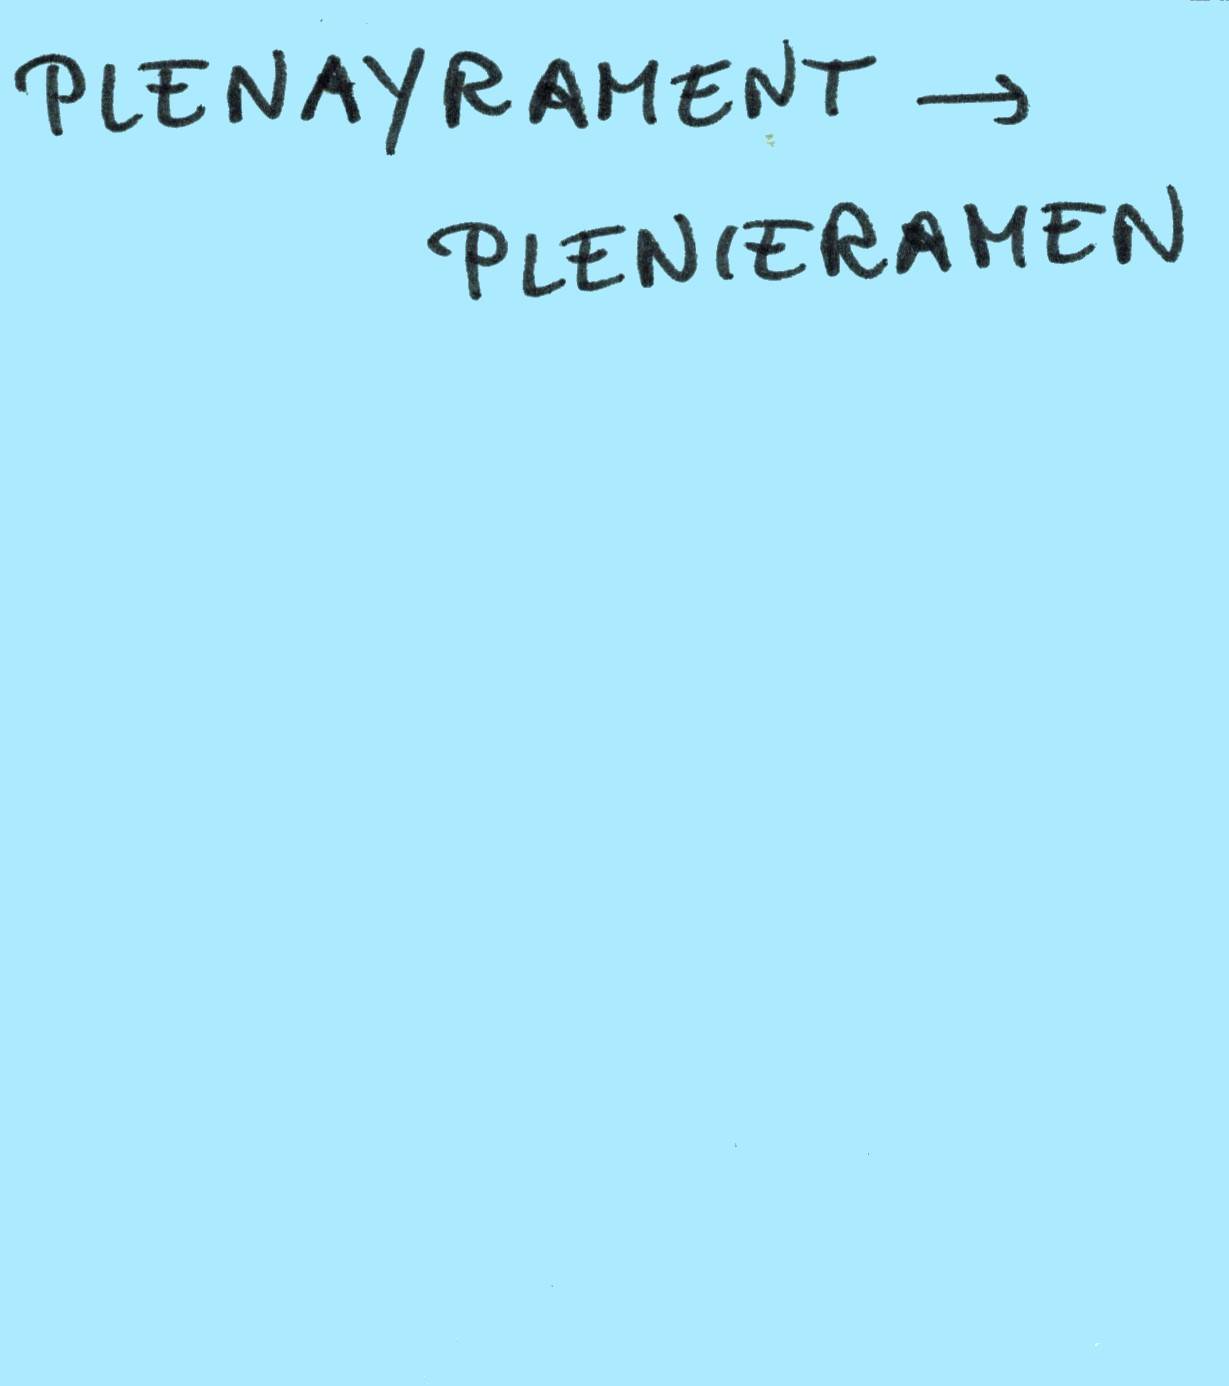 PLENAYRAMENT →
PLENIERAMEN